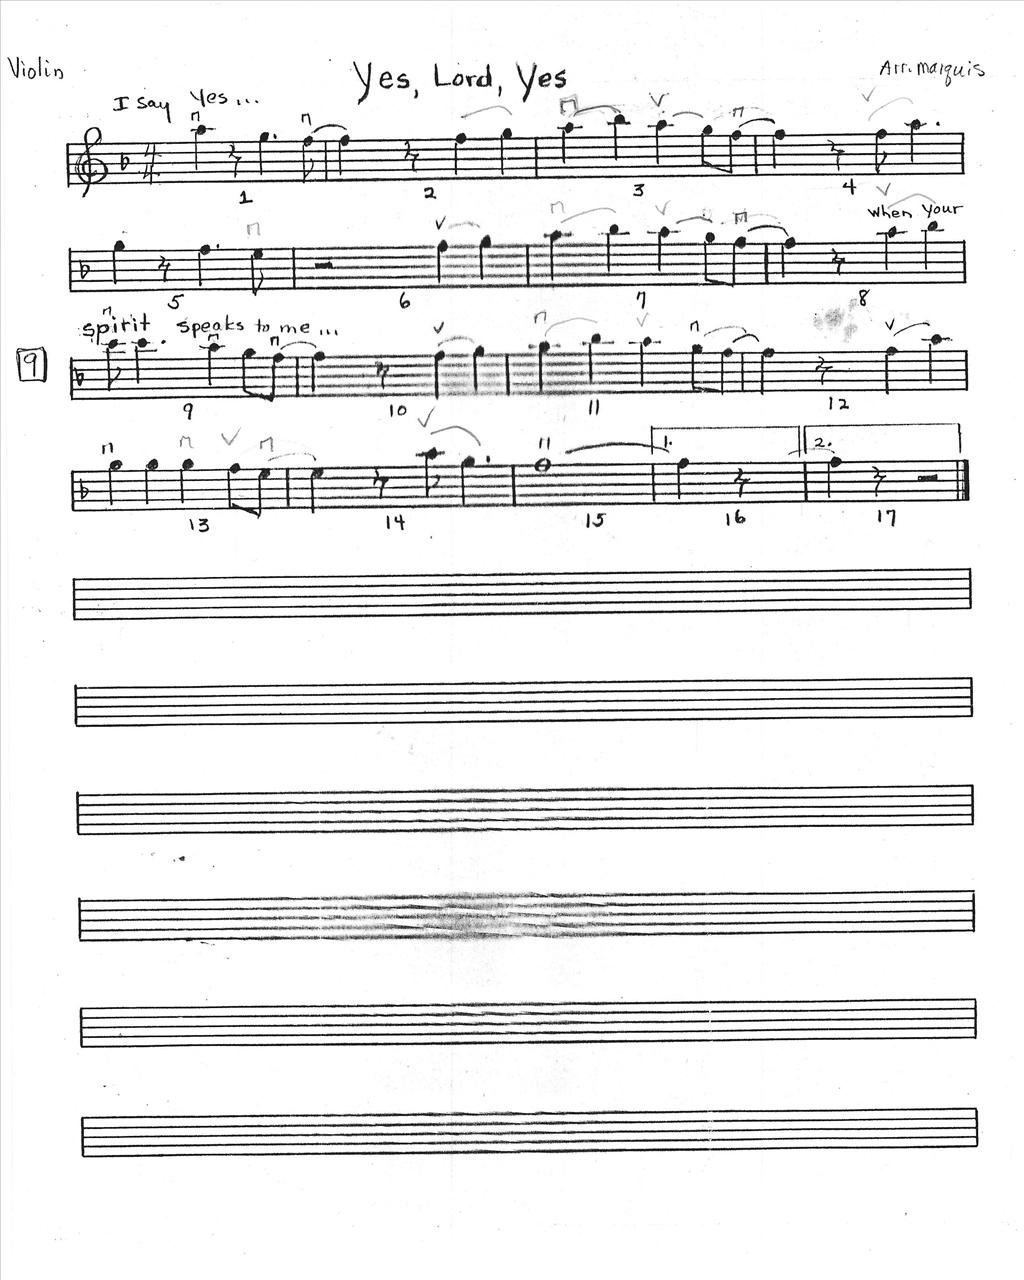 Violin
Yes, Lord, Yes
Arr. Marquis
I say Yes...
4
4
1 2 3 4
when your
5 6 7 8
spirit speaks to me...
9
9 10 11 12
1. 2.
13 14 15 16 17